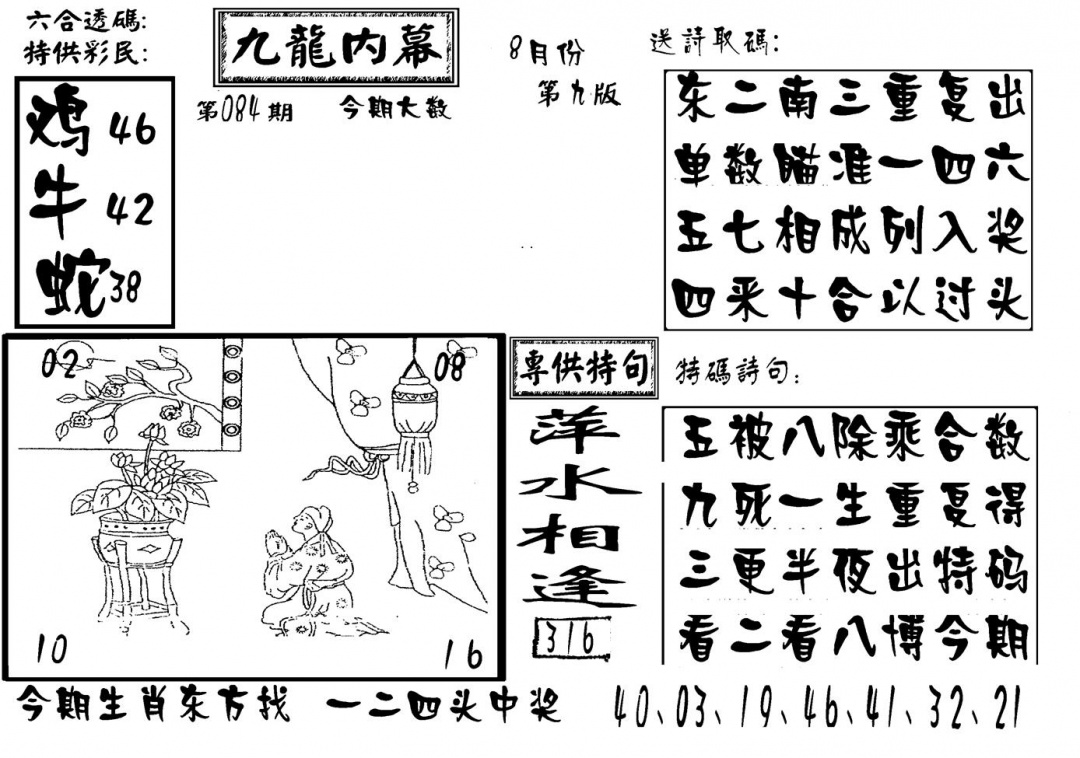 六合透碼:
特供彩民:
九龍内幕
第084期 今期大数
8月份
第九版
送詩取碼:
鸡 46
牛 42
蛇 38
东二南三重复出
单数瞄准一四六
五七相成列入奖
四采十合以过头
02
08
10
16
專供特句
萍水相逢
316
特碼詩句:
五被八除乘合数
九死一生重复得
三更半夜出特码
看二看八博今期
今期生肖东方找 一二四头中奖 40、03、19、46、41、32、21